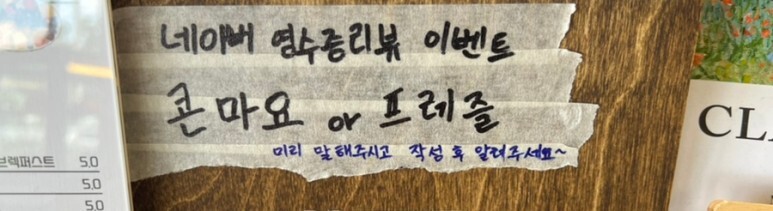 네이버 영수증리뷰 이벤트
콘마요 or 프레즐
미리 말해주시고 작성 후 알려주세요~
브렉퍼스트 5.0
5.0
5.0
CLA